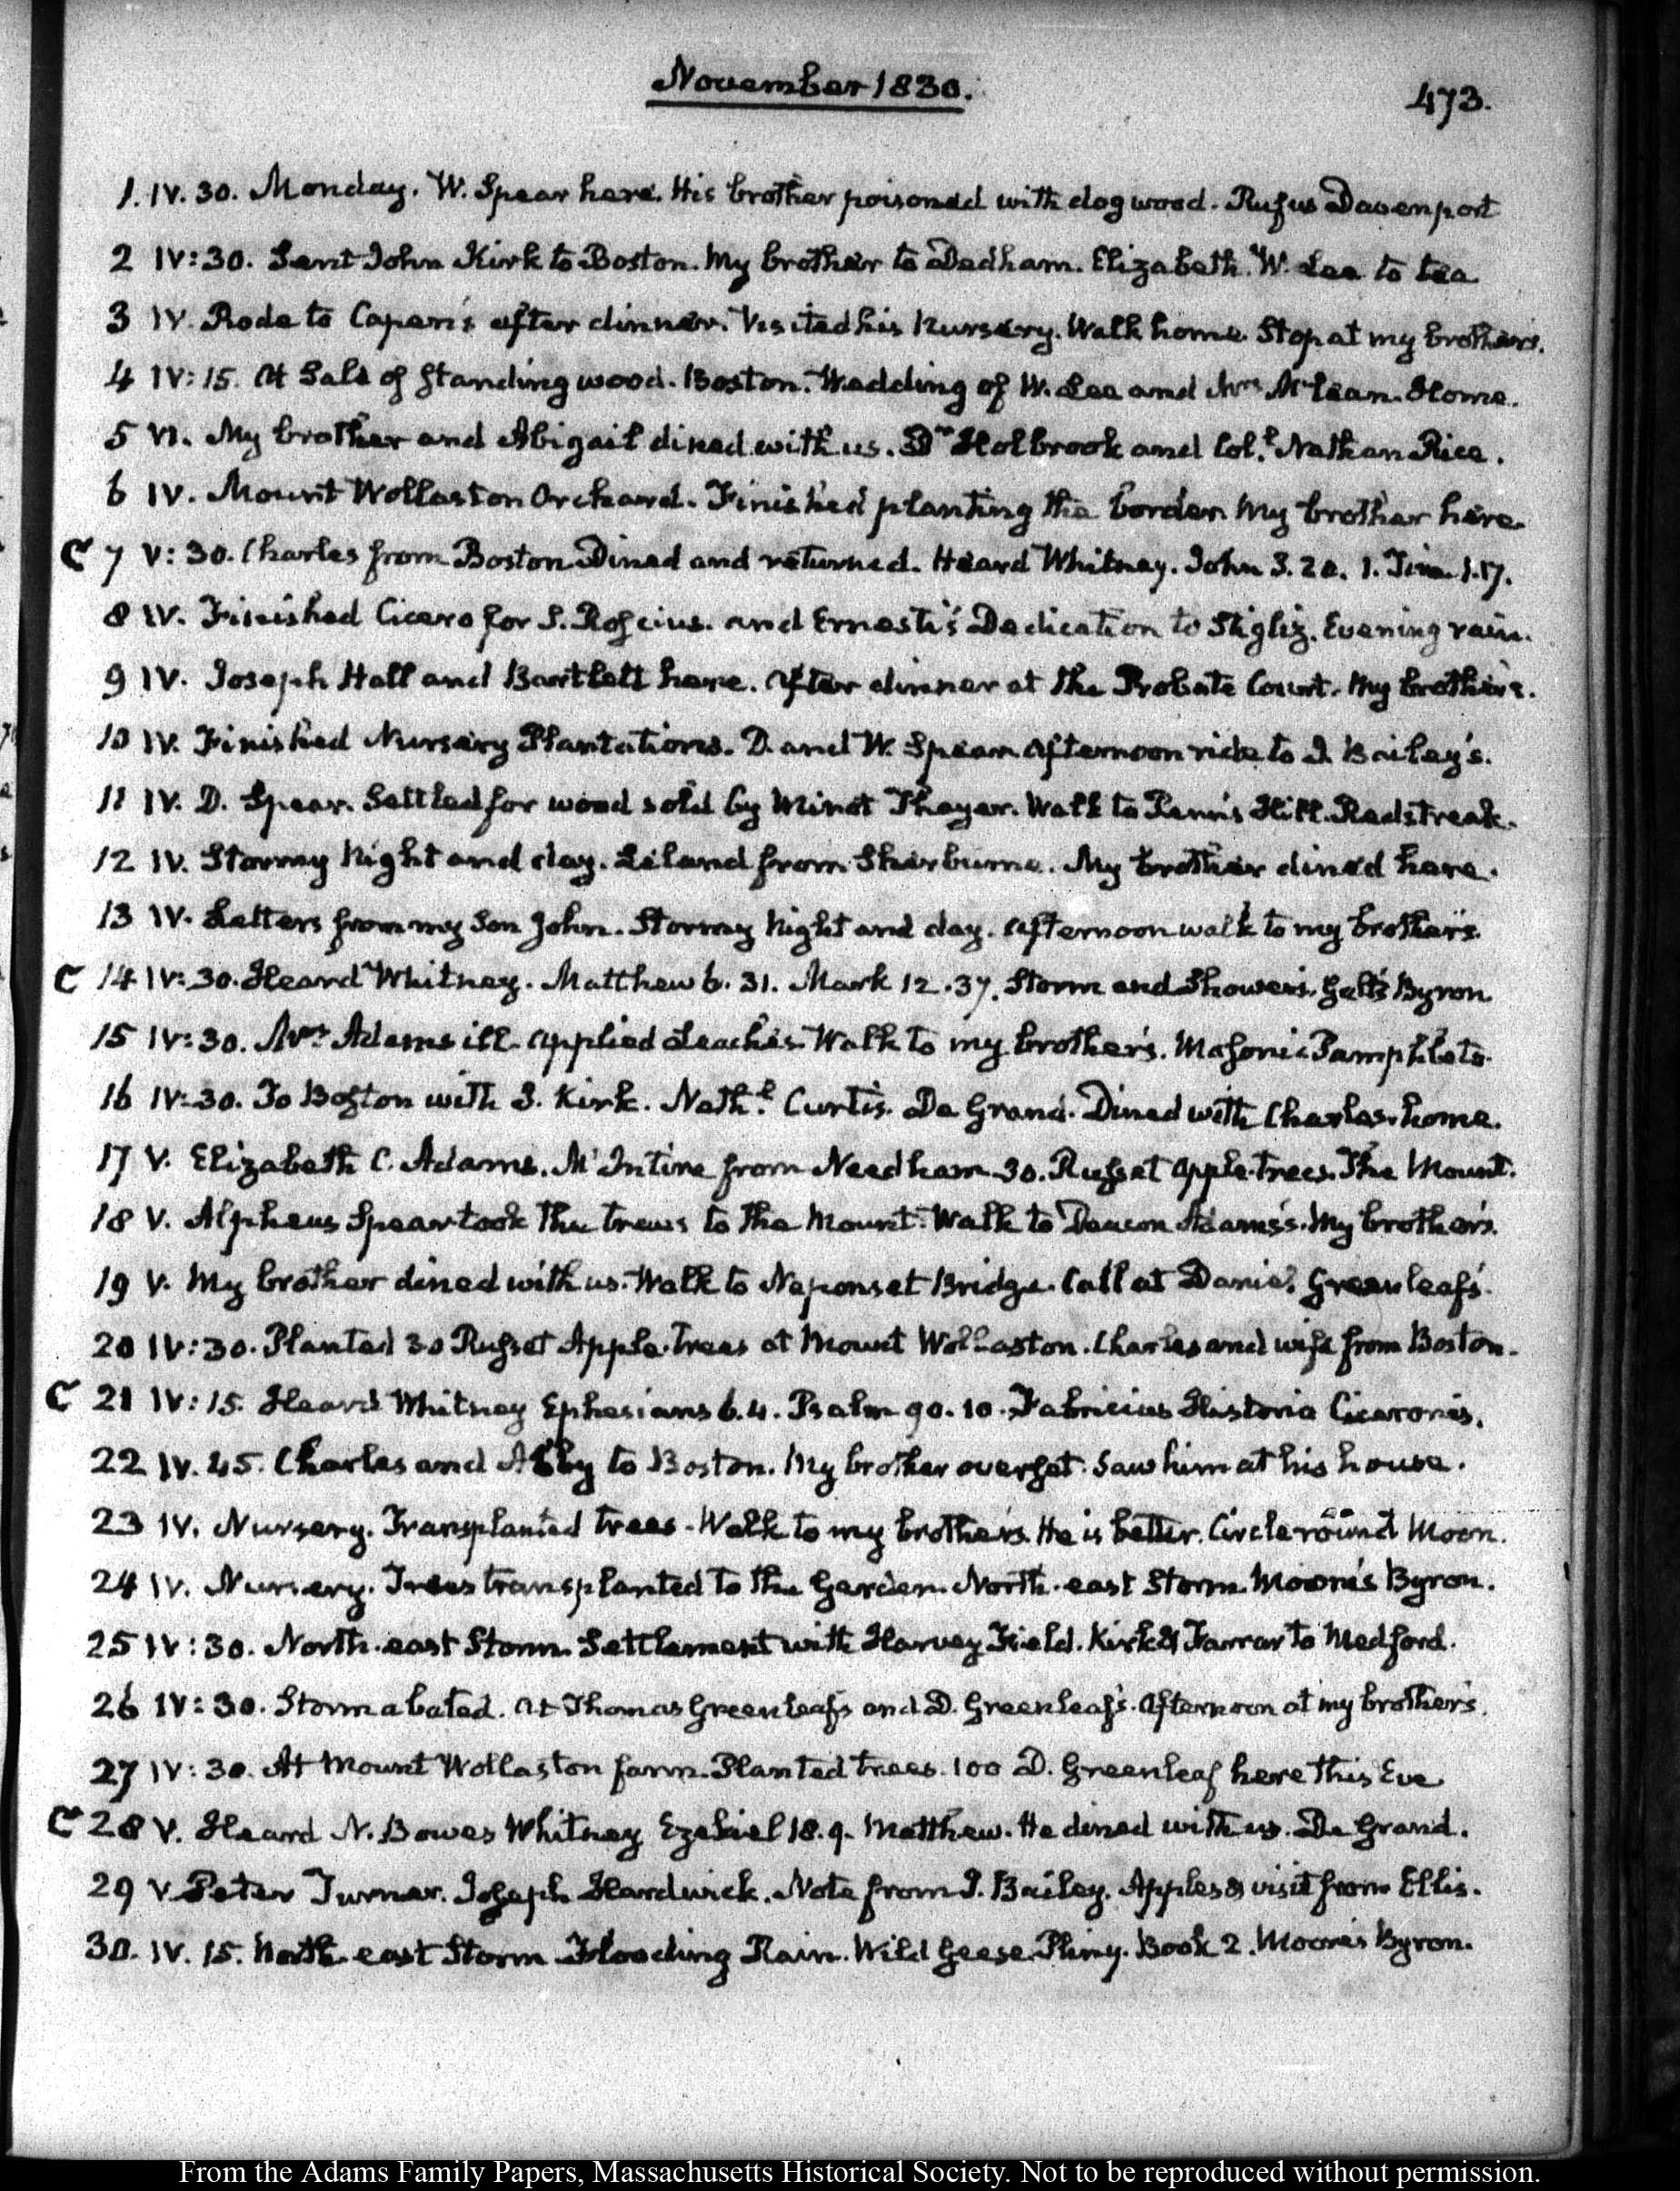 November 1830.
473.
1. IV. 30. Monday. W. Spear here. His brother poisoned with dogwood. Rufus Davenport
2 IV:30. Sent John Kirk to Boston. My brother to Dedham. Elizabeth. W. Lee to tea
3 IV. Rode to Capen's after dinner. Visited his Nursery. Walk home. Stop at my brothers.
4 IV:15. At Sale of standing wood. Boston. Wedding of W. Lee and Mrs McLean. Home.
5 VI. My brother and Abigail dined with us. Dr Holbrook and Col.l Nathan Rice.
6 IV. Mount Wollaston Orchard. Finished planting the border. My brother here.
C 7 V:30. Charles from Boston Dined and returned. Heard Whitney. John 3. 20. 1. Tim. 1.17.
8 IV. Finished Cicero for S. Roscius. and Ernesti's Dedication to Stigliz. Evening rain.
9 IV. Joseph Hall and Bartlett here. After dinner at the Probate Court. My brother's.
10 IV. Finished Nursery Plantations. D. and W. Spear. Afternoon ride to J. Bailey's.
11 IV. D. Spear. Settled for wood sold by Minot Thayer. Walk to Penn's Hill. Redstreak.
12 IV. Stormy Night and day. Leland from Sherburne. My brother dined here.
13 IV. Letters from my Son John. Stormy Night and day. Afternoon walk to my brother's.
C 14 IV:30. Heard Whitney. Matthew 6. 31. Mark 12. 37. Storm and Showers. Galt's Byron
15 IV:30. Mrs Adams ill. applied Leeches. Walk to my brother's. Masonic Pamphlets.
16 IV:30. To Boston with J. Kirk. Nath.l Curtis. De Grand. Dined with Charles. home.
17 V. Elizabeth C. Adams. McIntire from Needham. 30. Russet apple-trees. The Mount.
18 V. Alpheus Spear took the trees to the Mount. Walk to Deacon Adams's. My brother's.
19 V. My brother dined with us. Walk to Neponset Bridge. Call at Daniel Greenleaf's.
20 IV:30. Planted 30 Russet Apple-trees at Mount Wollaston. Charles and wife from Boston.
C 21 IV:15. Heard Whitney Ephesians 6. 4. Psalm 90. 10. Fabricius Historia Ciceronis.
22 IV. 45. Charles and Abby to Boston. My brother overset. Saw him at his house.
23 IV. Nursery. Transplanted trees. Walk to my brother's. He is better. Circle round Moon.
24 IV. Nursery. Trees transplanted to the Garden. North-east Storm. Moore's Byron.
25 IV:30. North-east Storm. Settlement with Harvey Field. Kirk & Farrar to Medford.
26 IV:30. Storm abated. At Thomas Greenleaf's and D. Greenleaf's. Afternoon at my brother's.
27 IV:30. At Mount Wollaston farm. Planted trees. 100 D. Greenleaf here this Eve
C 28 V. Heard N. Bowes Whitney Ezekiel 18. 9. Matthew. He dined with us. De Grand.
29 V. Peter Turner. Joseph Hardwick. Note from J. Bailey. Apples & visit from Ellis.
30. IV. 15. North-east Storm. Flooding Rain. Wild Geese. Pliny. Book 2. Moore's Byron.
From the Adams Family Papers, Massachusetts Historical Society. Not to be reproduced without permission.